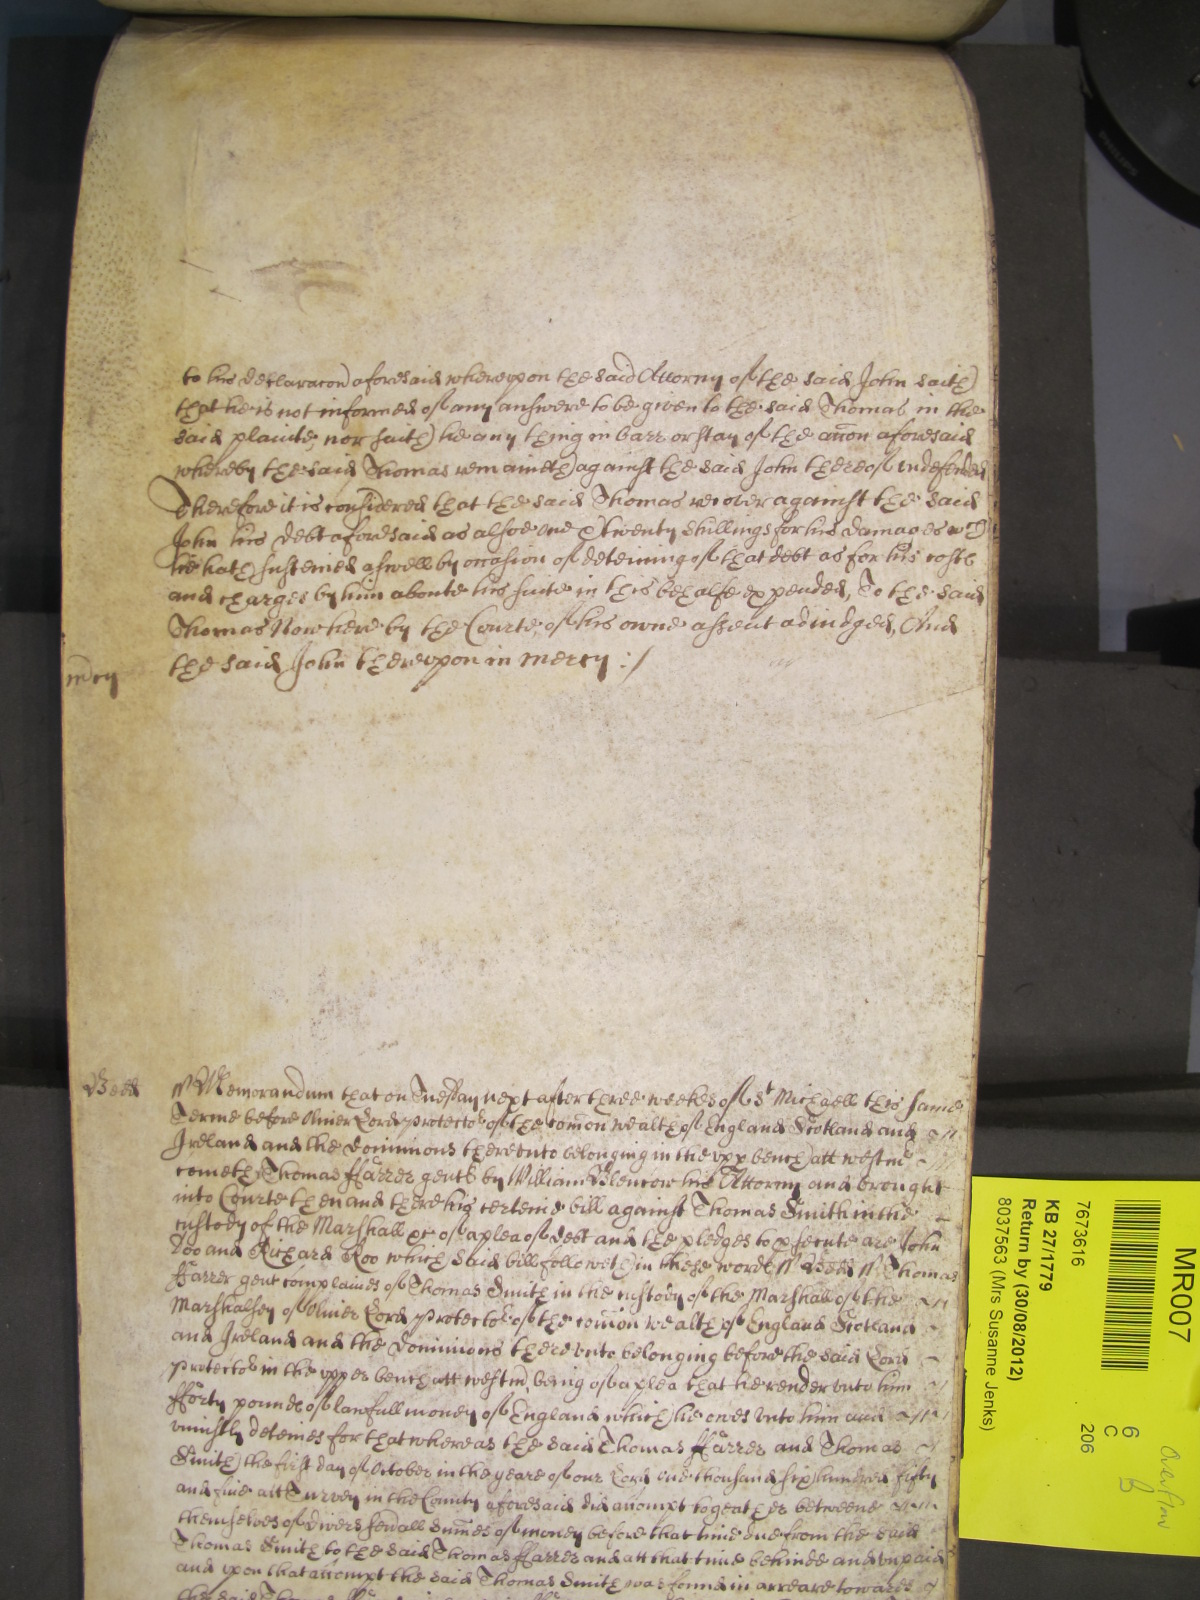 to his declaracon aforesaid whereupon the said Attorny of the said John saith
that he is not informed of any answere to be given to the said Thomas in the
said plainte, nor saith he any thing in barr or stay of the accon aforesaid
whereby the said Thomas remaineth against the said John thereof undefended
Therefore it is considered that the said Thomas recover against the said
John his debt aforesaid as alsoe one & twenty shillings for his damages wch
he hath susteined aswell by occasion of deteining of that debt as for his costs
and charges by him aboute his suite in this behalfe expended, To the said
Thomas Now here by the Courte, of his owne assent adiudged, And
the said John thereupon in mercy :/
mercy
Bedd
Memorandum that on Tuesday next after three weekes of St Michaell this same
Terme before Oliver Lord protector of the comon wealth of England Scotland and
Ireland and the dominions thereunto belonging in the upp bench att westmr
cometh Thomas Harrer gent by William Blencow his Attorny and brought
into Courte then and there his certeine bill against Thomas Smith in the
custody of the Marshall &c of a plea of debt and the pledges to psecute are John
Doo and Richard Roo which said bill followeth in these words Bedd Thomas
Harrer gent complaines of Thomas Smith in the custody of the Marshall of the
Marshalsey of Oliver Lord protector of the comon wealth of England Scotland
and Ireland and the dominions thereunto belonging before the said Lord
protector in the upper bench att westm, being of a plea that he render unto him
fforty pounds of lawfull money of England which he owes unto him and
uniustly deteines for that whereas the said Thomas Harrer and Thomas
Smith the first day of October in the yeare of our Lord one thousand six hundred fifty
and five att Turvey in the County aforesaid did accompt togeather betweene
themselves of divers severall sumes of money before that time due from the said
Thomas Smith to the said Thomas Harrer and att that time behinde and unpaid
and upon that accompt the said Thomas Smith was found in arreare towards
the said
PHILIPS
MR007
7673616
6
C
206
KB 27/1779
Return by (30/08/2012)
8037563 (Mrs Susanne Jenks)